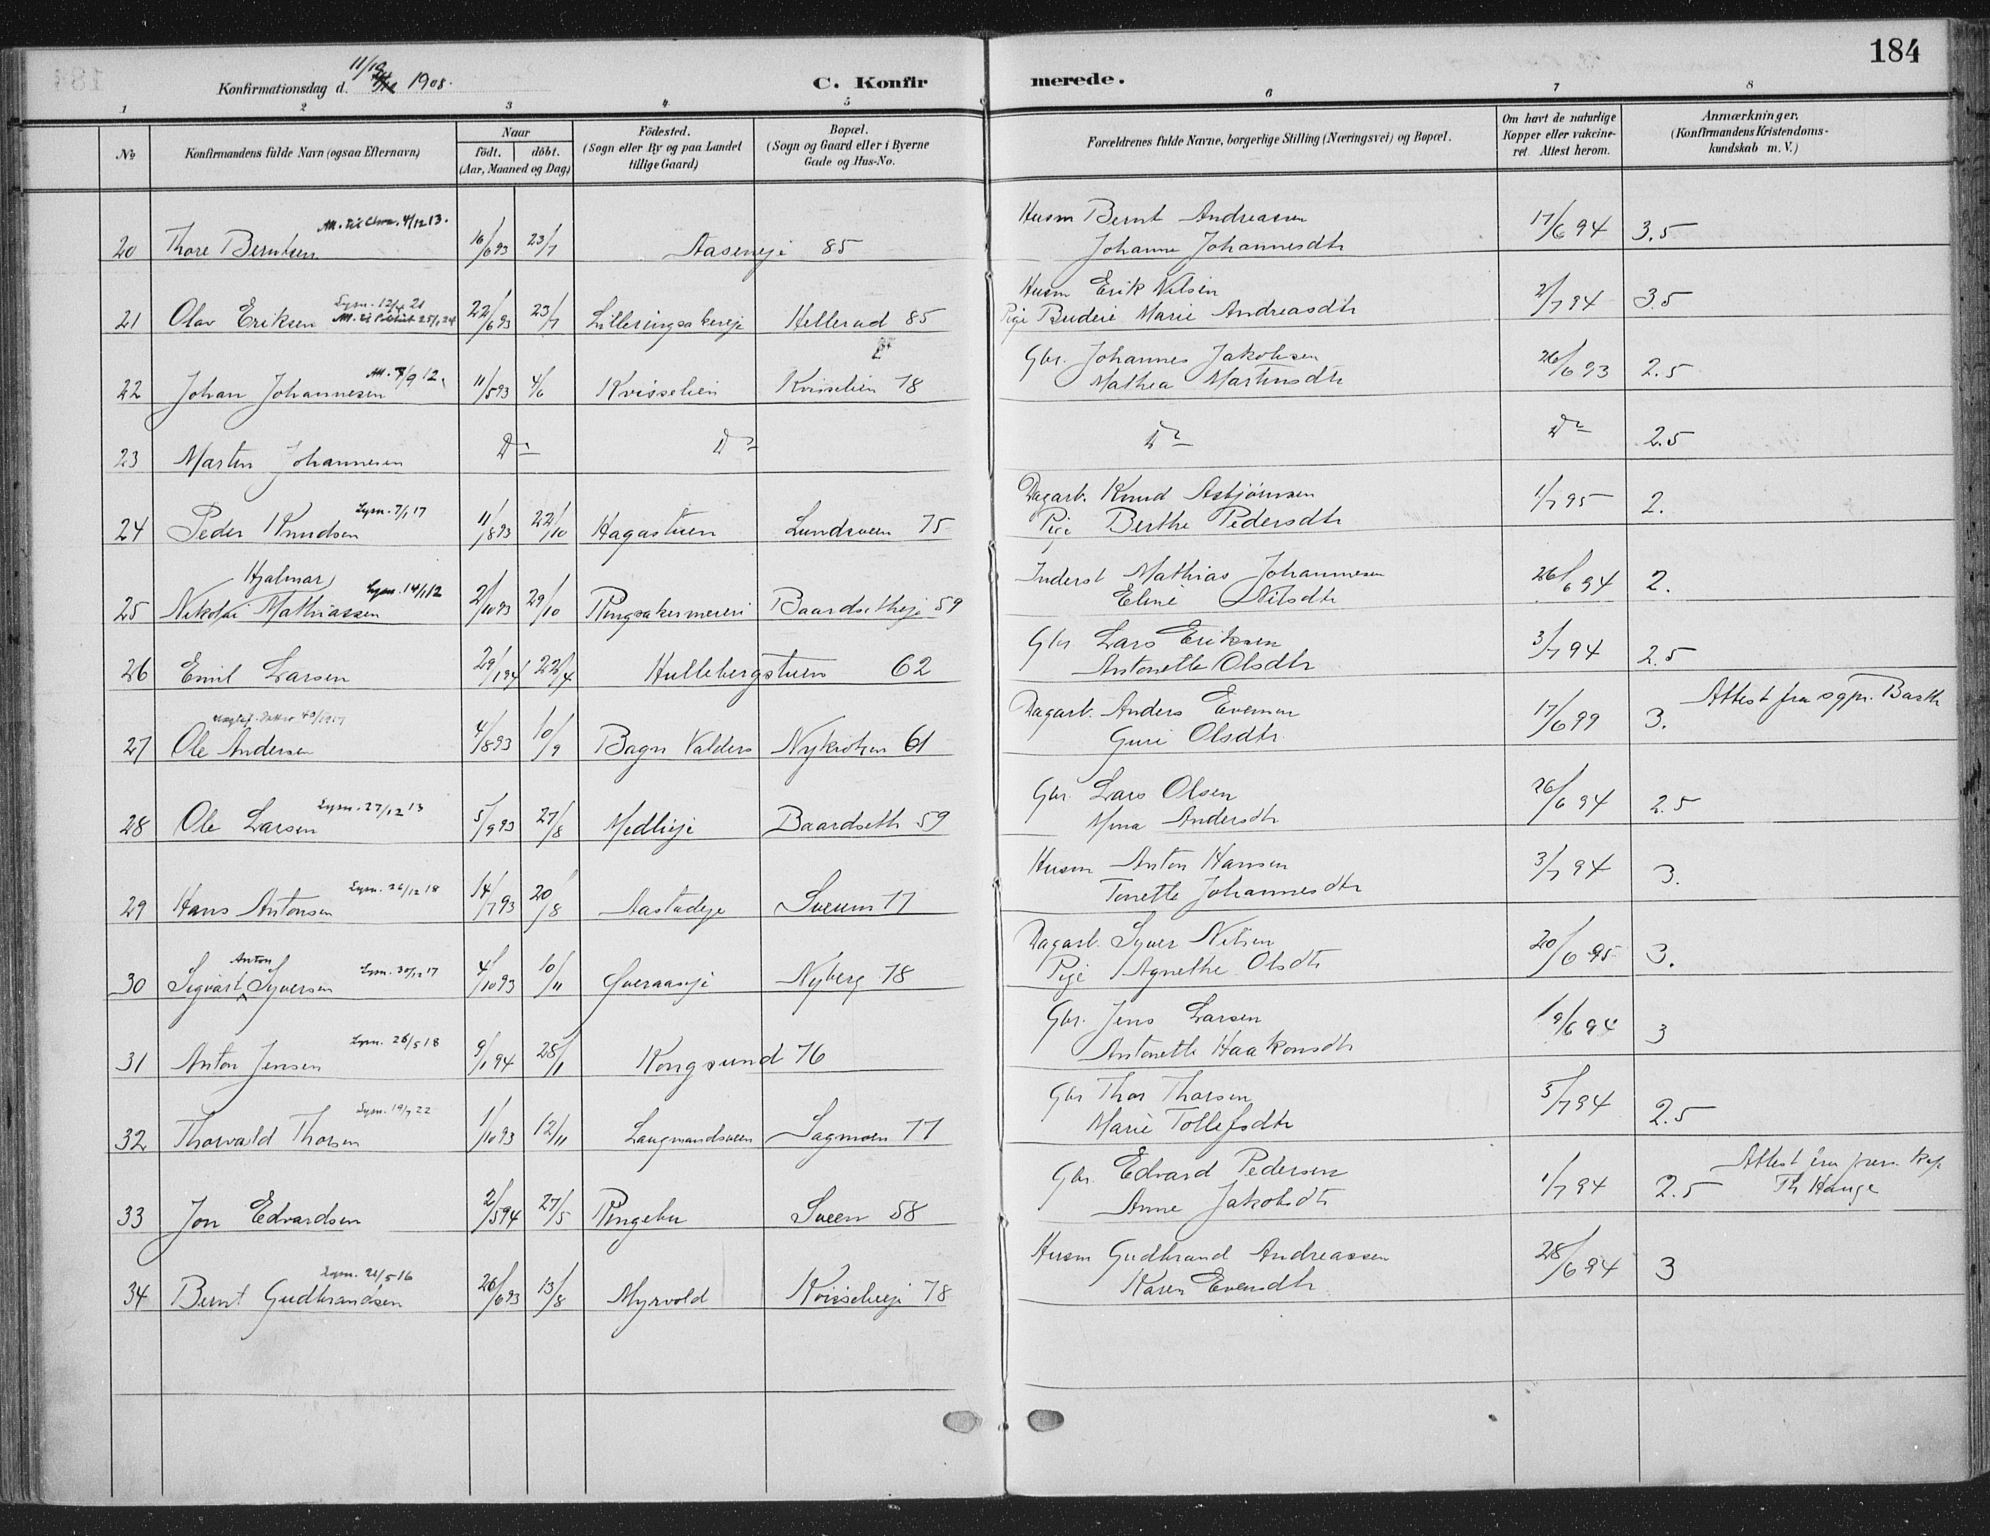 184
Konfirmationsdag d. 11/10 1908.
C. Konfirmerede.
1 2 3 4 5 6 7 8
No
Konfirmandens fulde Navn (ogsaa Efternavn)
Naar
födt. döbt.
(Aar, Maaned og Dag)
Födested.
(Sogn eller By og paa Landet
tillige Gaard)
Bopæl.
(Sogn og Gaard eller i Byerne
Gade og Hus-No.
Forældrenes fulde Navne, borgerlige Stilling (Næringsvei) og Bopæl.
Om havt de naturlige
Kopper eller vakcine-
ret. Attest herom.
Anmærkninger.
(Konfirmandens Kristendoms-
kundskab m. V.)
4/12 13.
20 Thore Berntsen 16/6 93 23/7 Aaseneje 85 Husm Bernt Andreassen 17/6 94 3.5
Johanne Johannesdtr
Lysn. 12/4 21
21 Olav Eriksen 22/6 93 23/7 Lilleringsakereje Hellerud 85 Husm Erik Nilsen 2/7 94 3.5
Pige Budeie Marie Andreasdtr
Att. 3/9 12.
22 Johan Johannesen 11/5 93 4/6 Kvisselien Kvisselien 78 Gbr. Johannes Jakobsen 26/6 93 2.5
Mathea Martinsdtr
23 Martin Johannesen Do Do Do Do 2.5
Lysn. 7/1 17
24 Peder Knudsen 11/8 93 22/10 Hagastuen Lundsveen 75 Dagarb. Knud Asbjörnsen 1/7 95 2.
Pige Berthe Pedersdtr
Hjalmar Lysn. 14/1 12
25 Nikolai Mathiassen 2/10 93 29/10 Ringsakermeieri Baardsetheje 59 Inderst Mathias Johannesen 26/6 94 2.
Eline Nilsdtr
26 Emil Larsen 29/1 94 22/4 Hullebergstuen 62 Gbr Lars Eriksen 3/7 94 2.5
Antonette Olsdtr
27 Ole Andersen 4/8 93 10/9 Bagn Valders 61 Dagarb. Anders Evensen 17/6 99 3. Attest fra sgpr. Barth
Guri Olsdtr
Lysn. 27/12 13
28 Ole Larsen 5/9 93 27/8 Medlieje Baardseth 59 Gbr. Lars Olsen 26/6 94 2.5
Mina Andersdtr
Lysn. 26/12 18
29 Hans Antonsen 14/7 93 20/8 Aastadeje Sveum 77 Husm Anton Hansen 3/7 94 3.
Tonette Johannesdtr
Anton Lysn. 30/12 17
30 Sigvart Syversen 4/10 93 10/11 Nyberg 78 Dagarb. Syver Nilsen 20/6 95 3.
Pige Agnethe Olsdtr
Lysn. 26/5 18
31 Anton Jensen 9/1 94 28/1 Kongsund 76 Gbr. Jens Larsen 19/6 94 3
Antonette Haakonsdtr
Lysn. 19/7 22
32 Thorvald Thorsen 1/10 93 12/11 Langmandsveen Sagmoen 77 Gbr Thor Thorsen 5/7 94 2.5
Marie Tollefsdtr
33 Jon Edvardsen 2/5 94 27/5 Ringebu Sveen 58 Gbr. Edvard Pedersen 1/7 94 2.5 Attest fra pers. kap.
Anne Jakobsdtr Th Hauge
Lysn. 21/5 16
34 Bernt Gudbrandsen 26/6 93 13/8 Myrvold Kvisselieje 78 Husm Gudbrand Andreassen 28/6 94 3
Karen Evensdtr